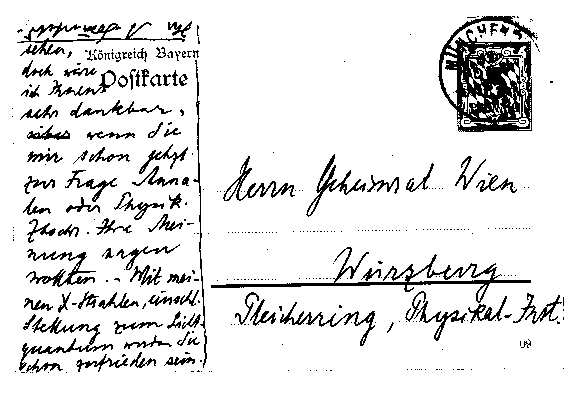 sehen,
doch wäre
ich Ihnen
sehr dankbar,
wenn Sie
mir schon jetzt
zur Frage Anna-
len oder Physik.
Ztschr. Ihre Mei-
nung sagen
wollten. - Mit mei-
nen X-Strahlen, einschl.
Stellung zum Licht-
quantum werden Sie
schon zufrieden sein.
Königreich Bayern
Postkarte
MÜNCHEN
Herrn Geheimrat Wien
Würzburg
Pleicherring, Physikal. Inst.
09